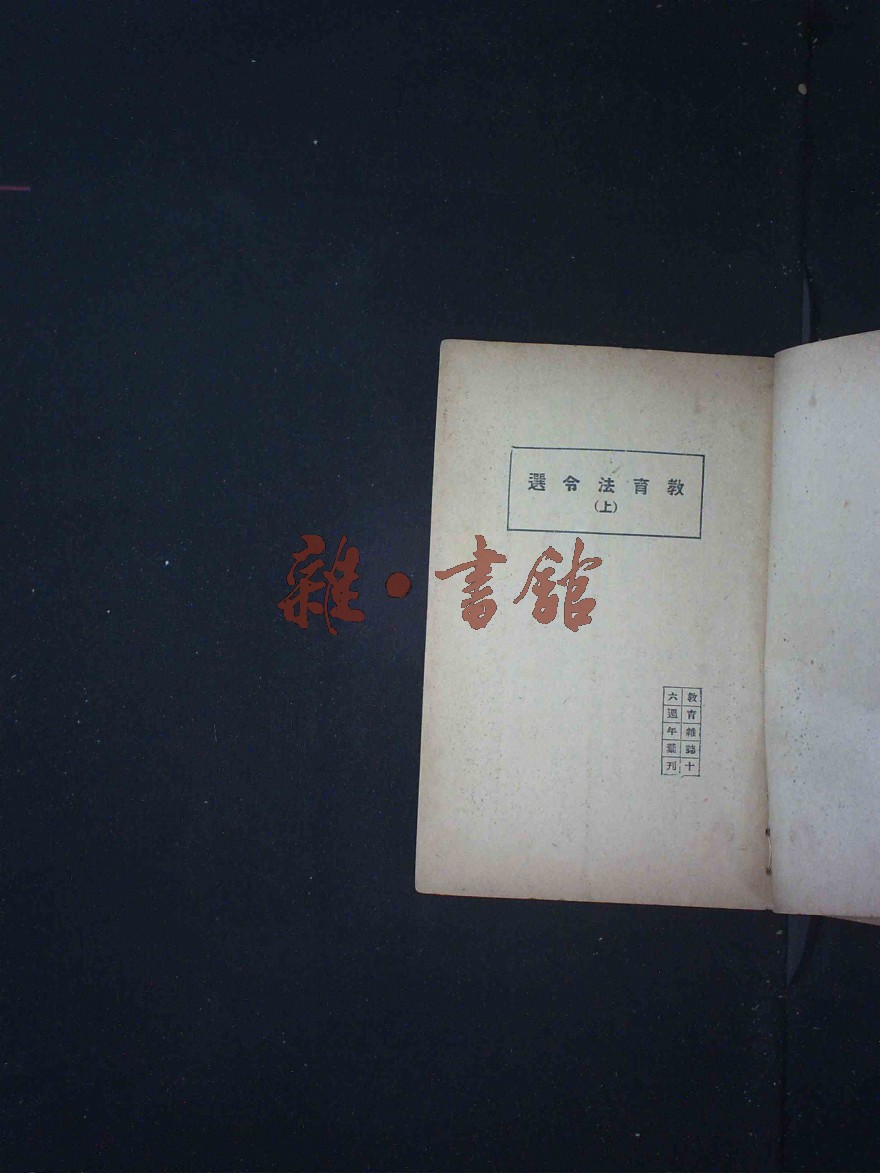 教育法令選
(上)
雜·書館
教育雜誌十
六週年叢刊